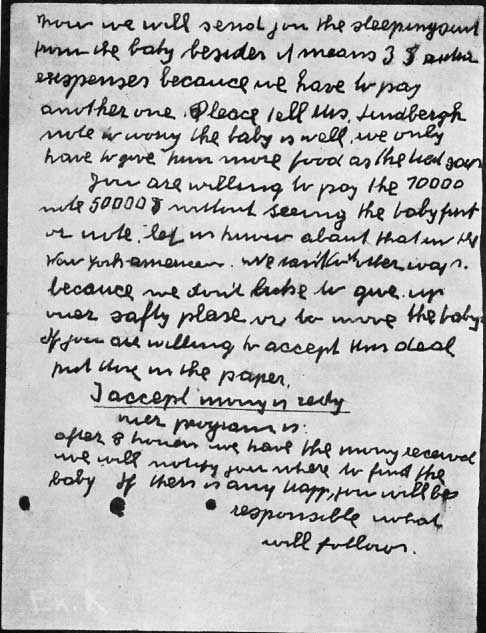 now we will send you the sleepingsuit
from the baby besides it means 3 $ extra
exspenses becauce we have to pay
another one. Pleace tell Mrs. Lindbergh
note to worry the baby is well. we only
have to give him more food as the diet says
You are willing to pay the 70000
note 50000 $ without seeing the baby first
or note. let us know about that in the
New York american. We can't other ways.
becauce we don't like to give up
ouer safty plase or to move the baby.
If you are willing to accept this deal
put this in the paper.
I accept mony is redy
ouer program is:
after 8 houers we have the mony receivd
we will notify you where to find the
baby If thers is any trapp, you will be
responsible what
will follows.
Ex. A